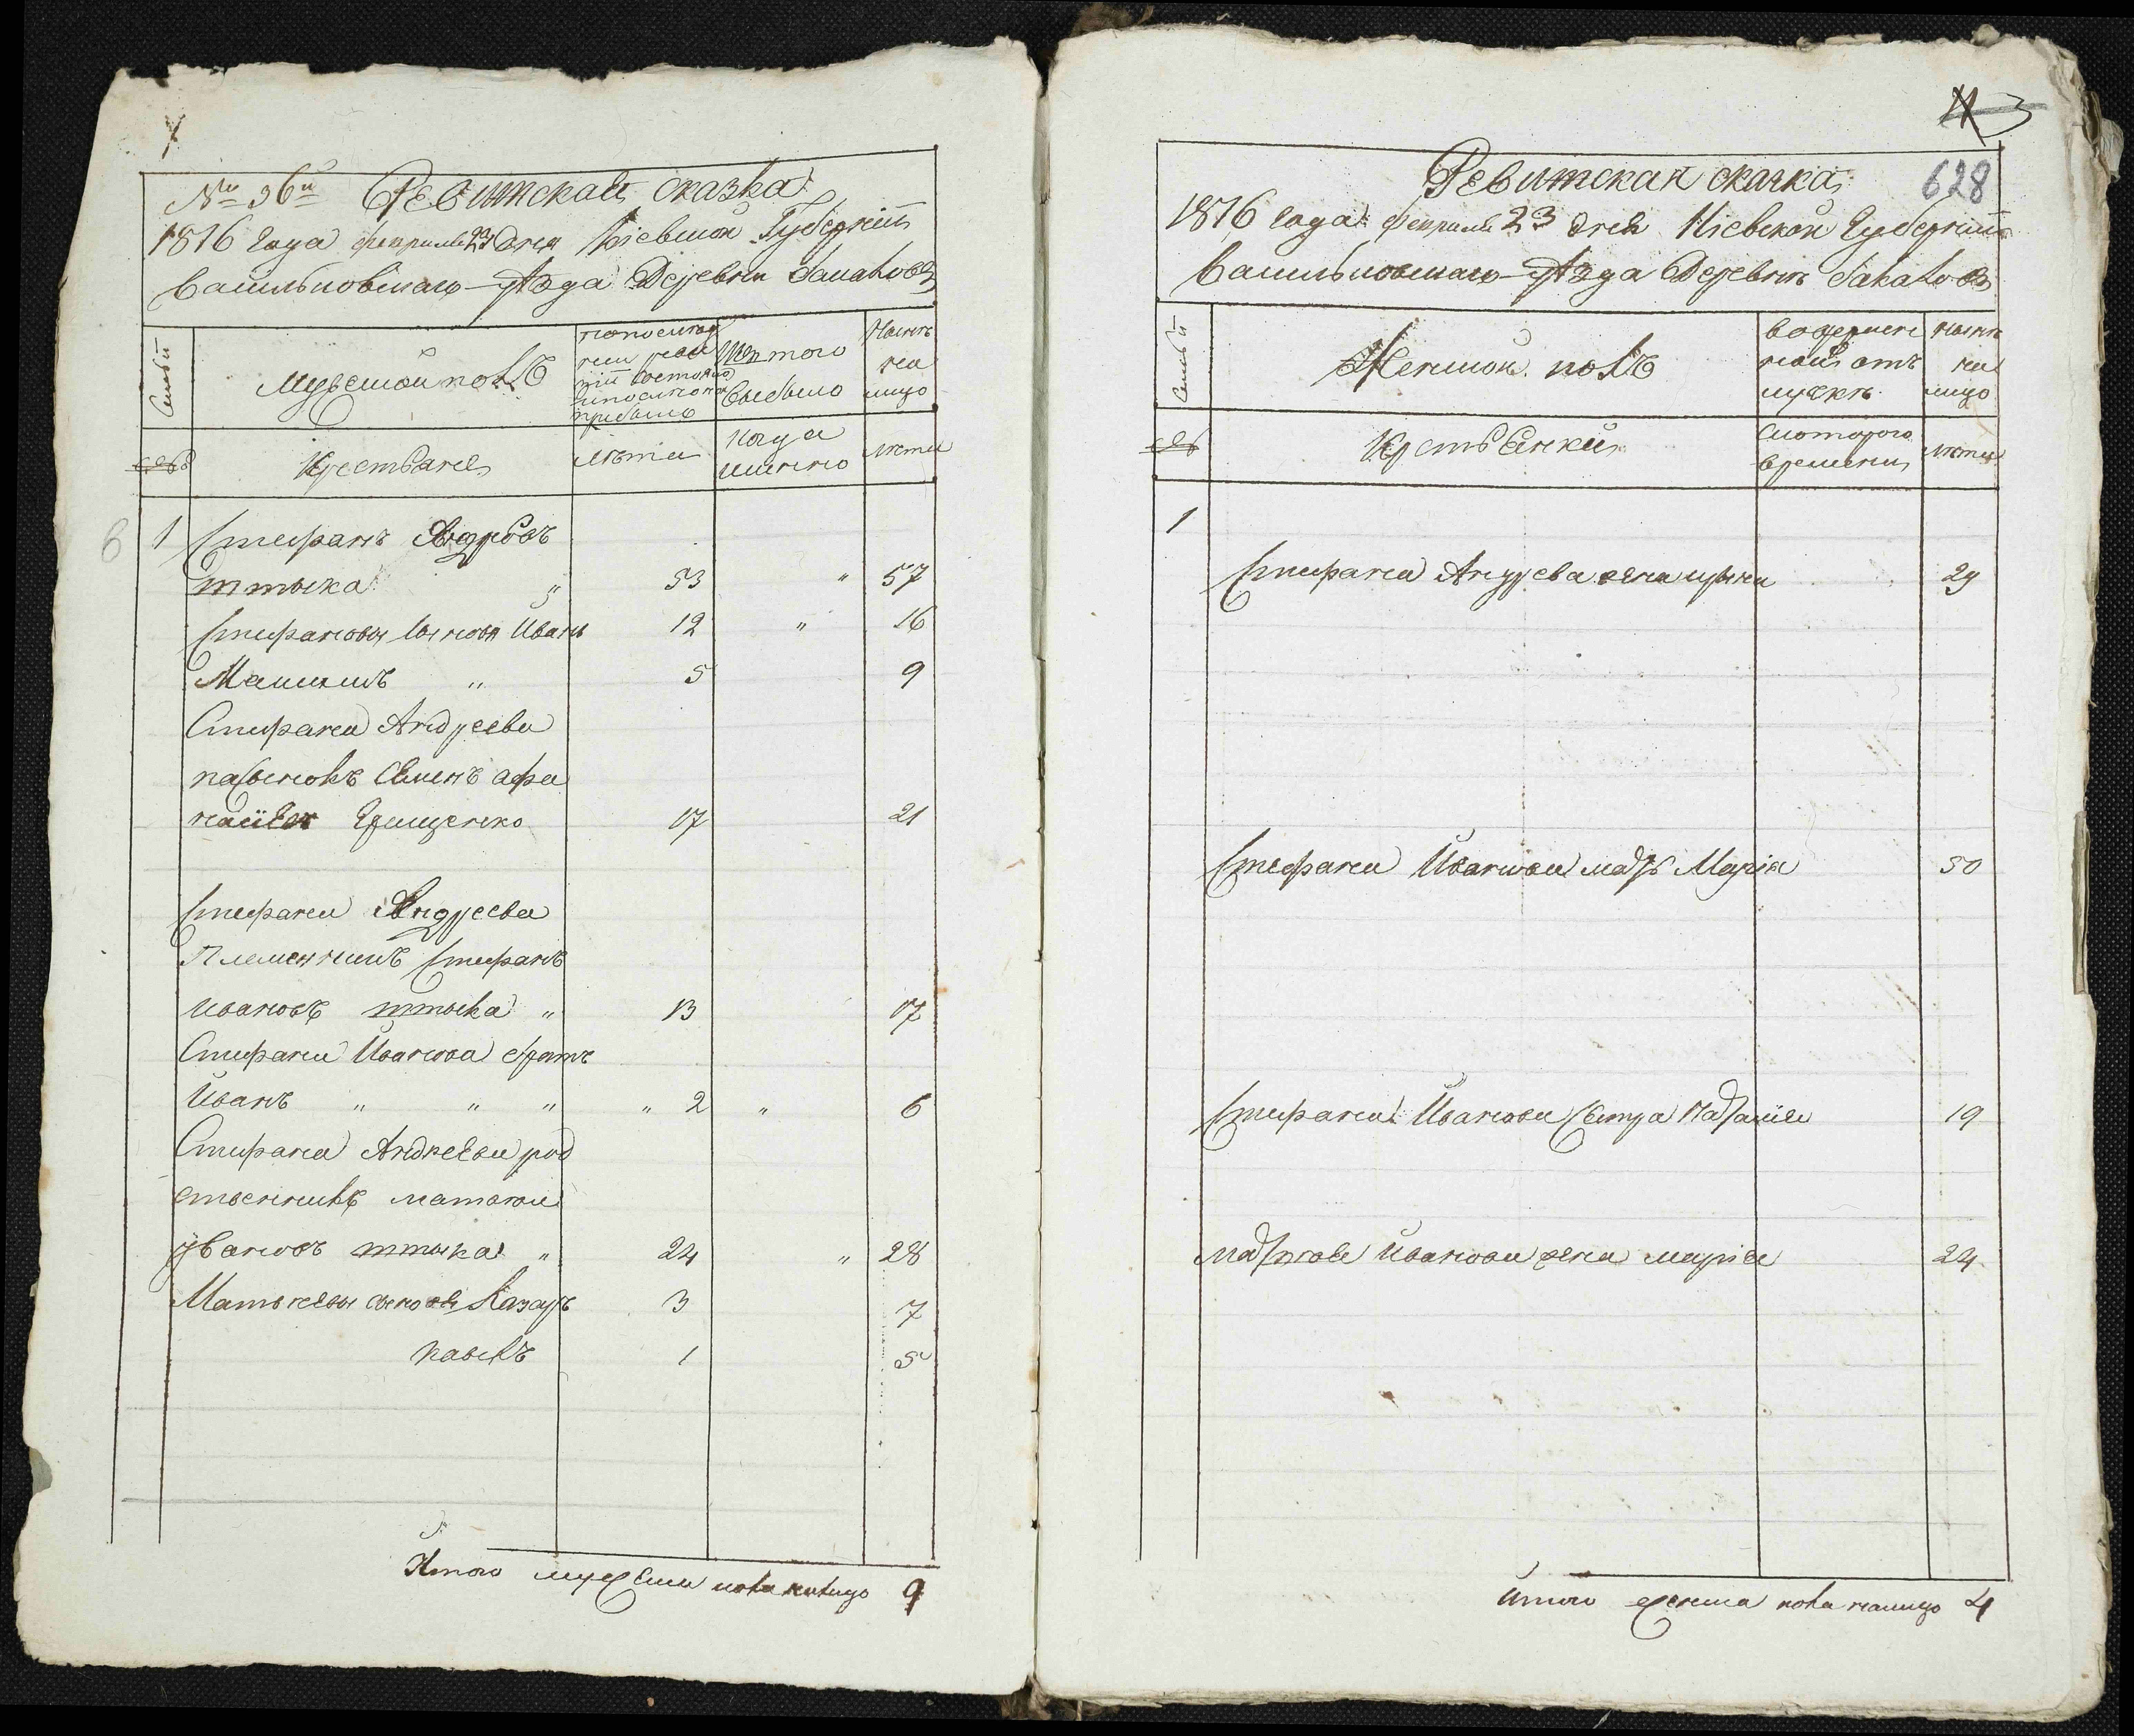 № 36й Ревитская сказка
1816 года февраля 23 дня Кіевской Губернїи
Васильковскаго уѣзда Деревни
Семьи
Мужеской полъ
по последней ревизїи состояло и после оной прибыло
Изъ того выбыло
Нынѣ на лицо
Крестьяне
лѣта
когда именно
лѣта
1 Стефанъ Андрѣевъ
53 " 57
Стефановы сыновья Иванъ 12 " 16
Максимъ " 5 9
Стефана Андреева
пасынокъ Семенъ Афа
насїевъ Грищенко 17 21
Стефана Андреева
Племенникъ Стефанъ
Ивановъ 13 17
Стефана Иванова братъ
Иванъ " " " " 2 " 6
Стефана Андреева род
ственникъ
Ивановъ 24 " 28
сыновя Лазарь 3 7
павелъ 1 5
Итого мужеска пола налицо 9
628
Ревитская сказка
1816 года февраля 23 дня Кіевской Губернїи
Васильковскаго уѣзда Деревни
Семьи
Женской полъ
во временной отлучкѣ
нынѣ на лицо
Крестьянки
с котораго времени
лѣта
1
Стефана Андреева жена 29
Стефана Иванова мать Марія 50
Стефана Иванова сестра 19
Иванова жена марія 24
Итого женска пола налицо 4